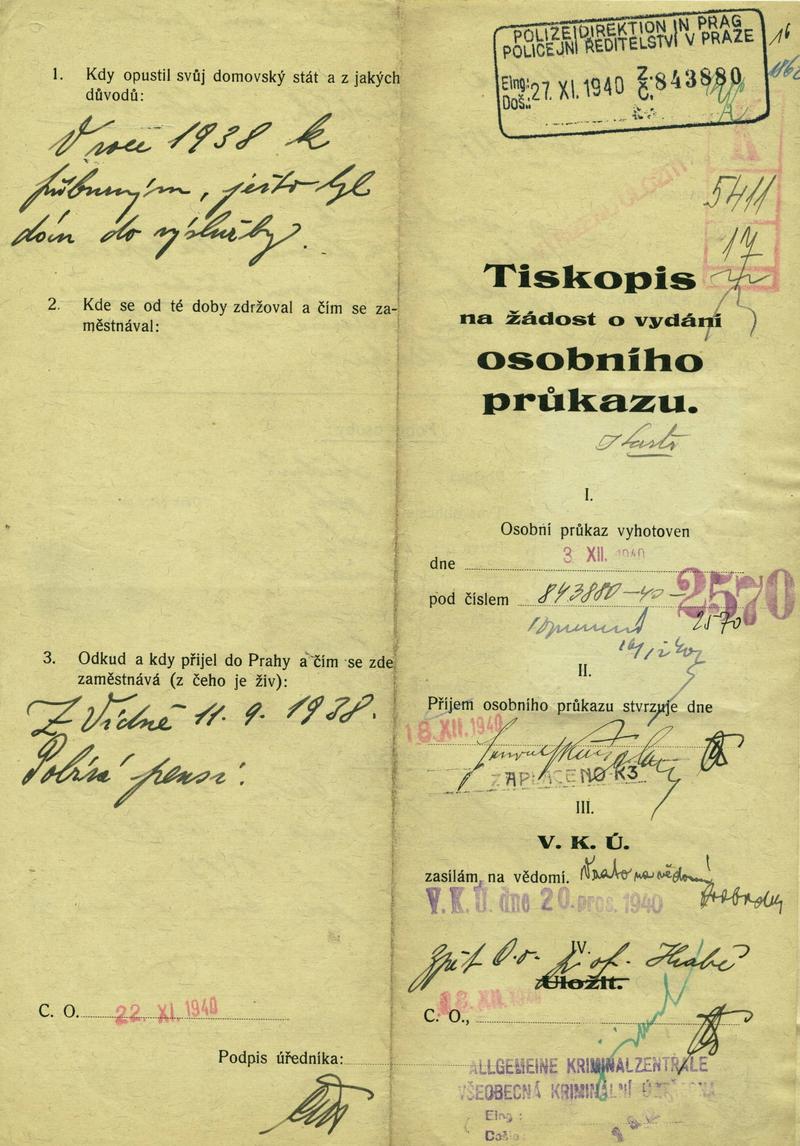 1. Kdy opustil svůj domovský stát a z jakých
důvodů:
V roce 1938 k
příbuzným, ješto byl
dán do výslužby.
2. Kde se od té doby zdržoval a čím se za-
městnával:
3. Odkud a kdy přijel do Prahy a čím se zde
zaměstnává (z čeho je živ):
Z Vídně 11. 9. 1938.
Pobírá pensi.
C. O. 22. XI. 1940
Podpis úředníka:
POLIZEIDIREKTION IN PRAG
POLICEJNÍ ŘEDITELSTVÍ V PRAZE
Eing.: Z.
Doš.: 27. XI. 1940 Č. 843880
16
A
5411
17
Tiskopis
na žádost o vydání
osobního
průkazu.
I.
Osobní průkaz vyhotoven
dne 3 XII. 1940
pod číslem 843880-40- 2570
2570
II.
Příjem osobního průkazu stvrzuje dne
18. XII. 1940
ZAPLACENO K3
III.
V. K. Ú.
zasílám na vědomí. Vzato na vědomí
V. K. Ú. dne 20. pros. 1940
IV.
zpět
Uložit.
C. O., 18. XII. 1940
ALLGEMEINE KRIMINALZENTRALE
VŠEOBECNÁ KRIMINÁLNÍ ÚSTŘEDNA
Eing.:
Došlo: